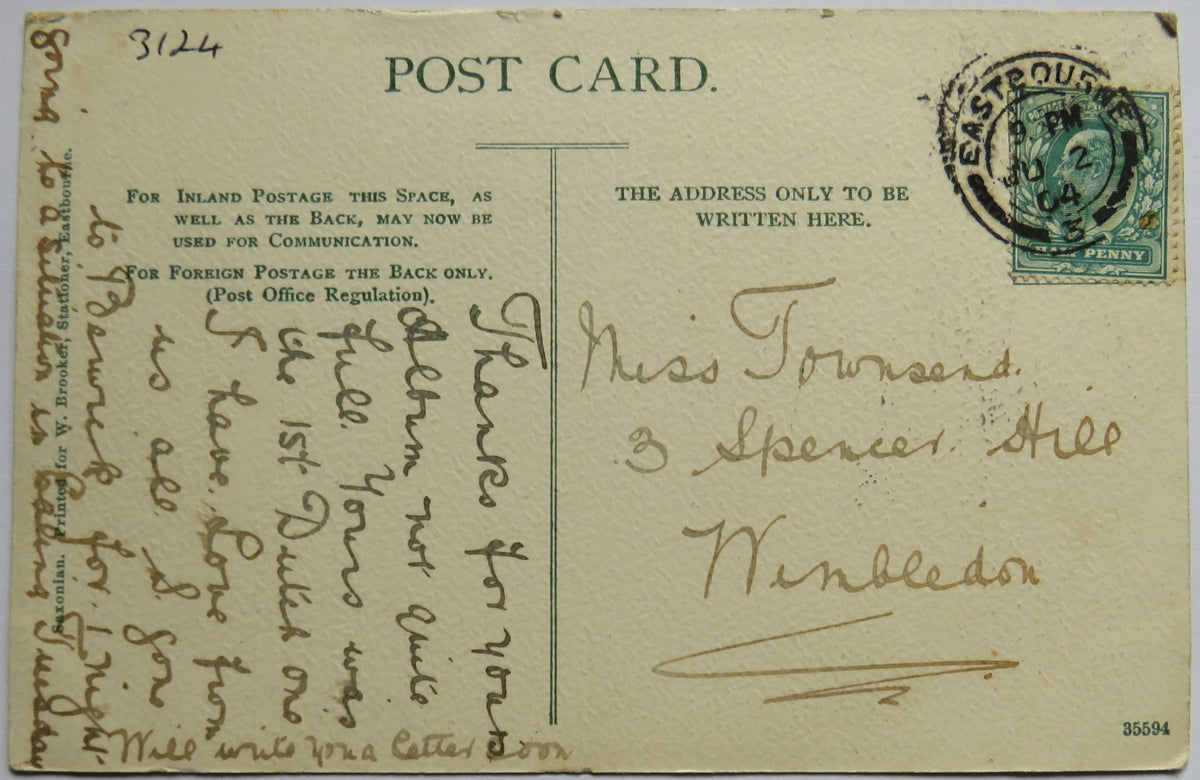 3124
POST CARD.
EASTBOURNE
9. PM
JU 2
04
3
HALF PENNY
FOR INLAND POSTAGE THIS SPACE, AS
WELL AS THE BACK, MAY NOW BE
USED FOR COMMUNICATION.
FOR FOREIGN POSTAGE THE BACK ONLY.
(Post Office Regulation).
THE ADDRESS ONLY TO BE
WRITTEN HERE.
Miss Townsend.
3 Spencer Hill
Wimbledon
Thanks for yours
Album not quite
full. Yours was
the 1st Dutch one
I have. Love from
us all S. gone
to Berwick for 1 night.
going to a situation in Ealing Tuesday
Will write you a letter soon
Saxonian. Printed for W. Brooker, Stationer, Eastbourne.
35594